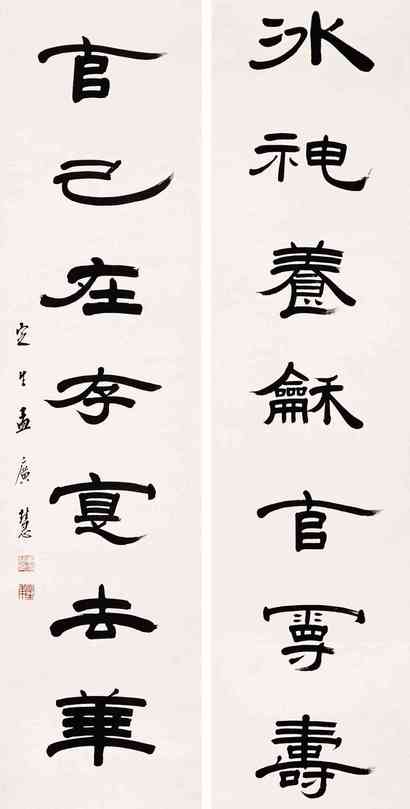 冰神養龢官壽
官己在存寔去華
定生孟廣慧